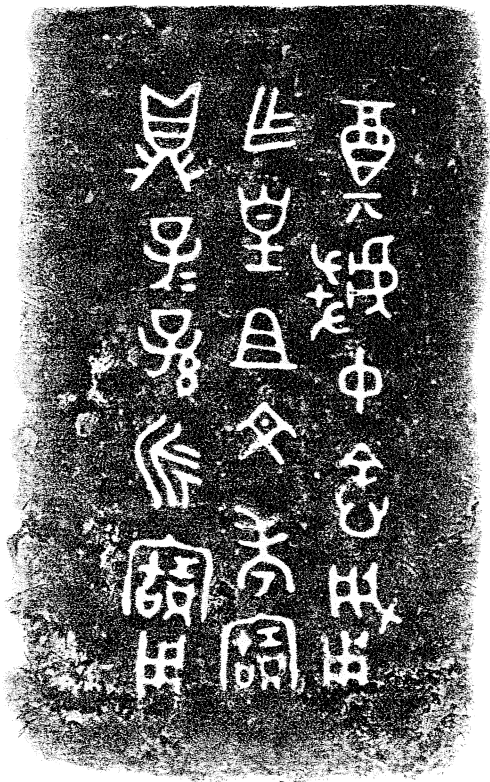 奠虢中悆肈用
乍皇且文考寶
鼎子=孫=永寶用